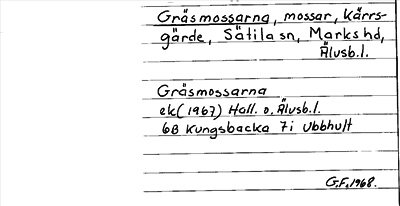 Gräsmossarna, mossar, Kärrs-
gärde, Sätila sn, Marks hd,
Älvsb.l.
Gräsmossarna
ek(1967) Hall. o. Älvsb.l.
6B Kungsbacka 7i Ubbhult
G.F. 1968.